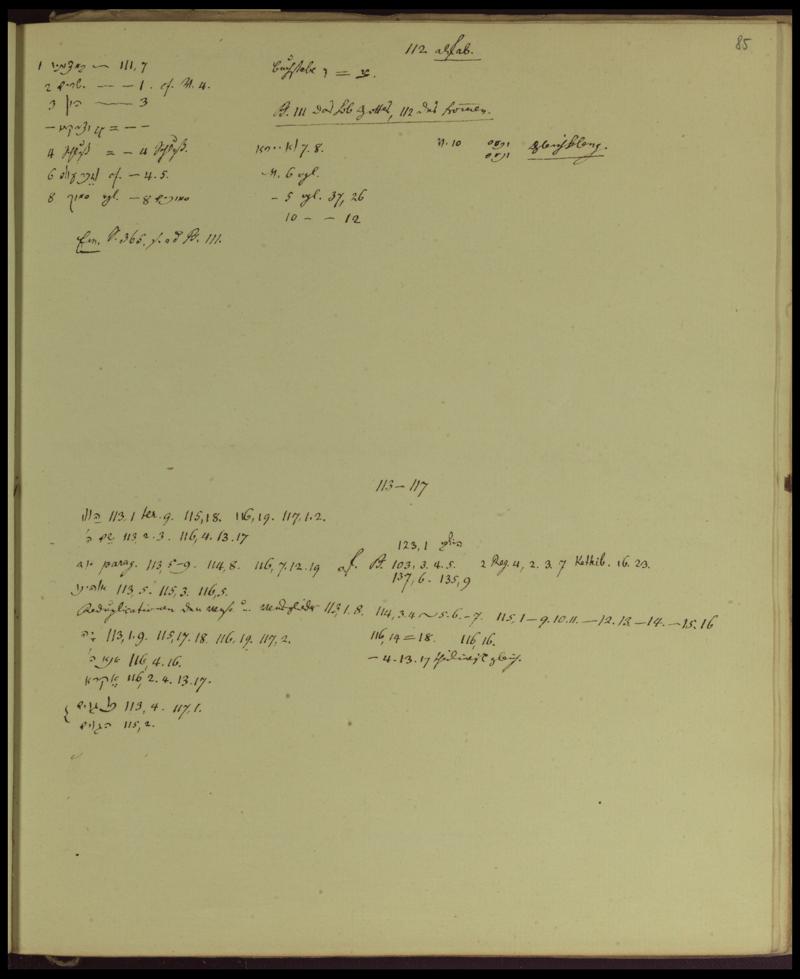 85
112 alfab.
1 — 111,7
2 ישרים — — 1. cf. V. 4.
3 הון — 3
— וצדקתו = — —
4 = — 4
6 cf. — 4. 5.
8 סמוך vgl. — 8 סמוכים
S. 365, s. ad Ps. 111.
Buchstabe ר =
Ps. 111 das Lob Gottes, 112 des Frommen.
לא יירא 7. 8.
V. 6 vgl.
— 5 vgl. 37, 26
10 — — 12
V. 10 וכעס
ונמס Gleichklang.
113—117
הללו 113,1 ter. 9. 115,18. 116,19. 117,1.2.
שם ה' 113,2.3. 116,4.13.17
יוד parag. 113,5—9. 114,8. 116,7.12.19 cf. Ps. 103, 3. 4. 5. 2 Reg. 4, 2. 3. 7 Kethib. 16. 23.
123,1
137,6. 135,9
אלהינו 113,5. 115,3. 116,5.
Reduplicationen der Verse u. Versglieder 113,1.8. 114,3.4 ~ 5.6. — 7. 115,1 — 9.10.11. — 12.13 — 14. — 15.16
יה 113,1.9. 115,17.18. 116,19. 117,2.
116,14 = 18. 116,16.
— 4. 13. 17 gleich.
אנא ה' 116,4.16.
אקרא 116,2.4.13.17.
כל גוים 113,4. 117,1.
הגוים 115,2.